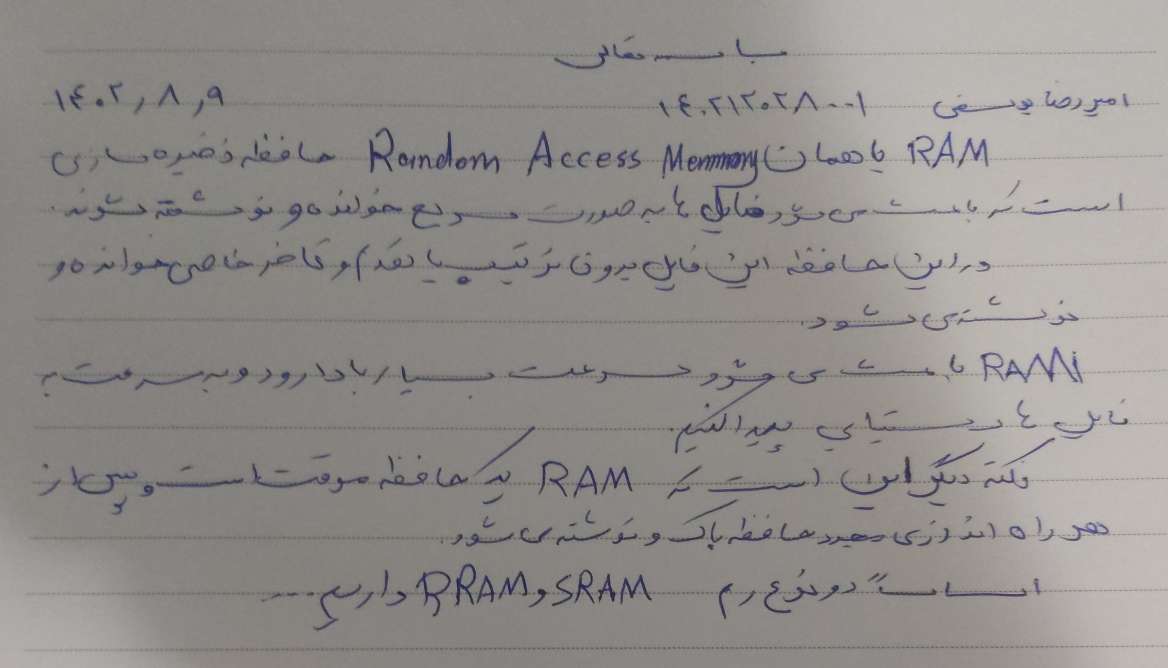 باسمه تعالی
امیررضا یوسفی ۱۴۰۲۱۲۰۲۸۰۰۱ ۱۴۰۲/۸/۹
RAM یا همان Random Access Memmory حافظه ذخیره سازی
است که باعث می شود فایل ها به صورت سریع خوانده و نوشته شوند.
در این حافظه این فایل بدون ترتیب یا تقدم و تاخر خاصی خوانده و
نوشته می شود.
RAM باعث می شود سرعت بسیار بالا رود و به سرعت به
فایل ها دستیابی پیدا کنیم.
نکته دیگر این است که RAM یک حافظه موقت است و پس از
هر راه اندازی مجدد حافظه پاک و نوشته می شود.
اساساً دو نوع رم SRAM و DRAM داریم ...